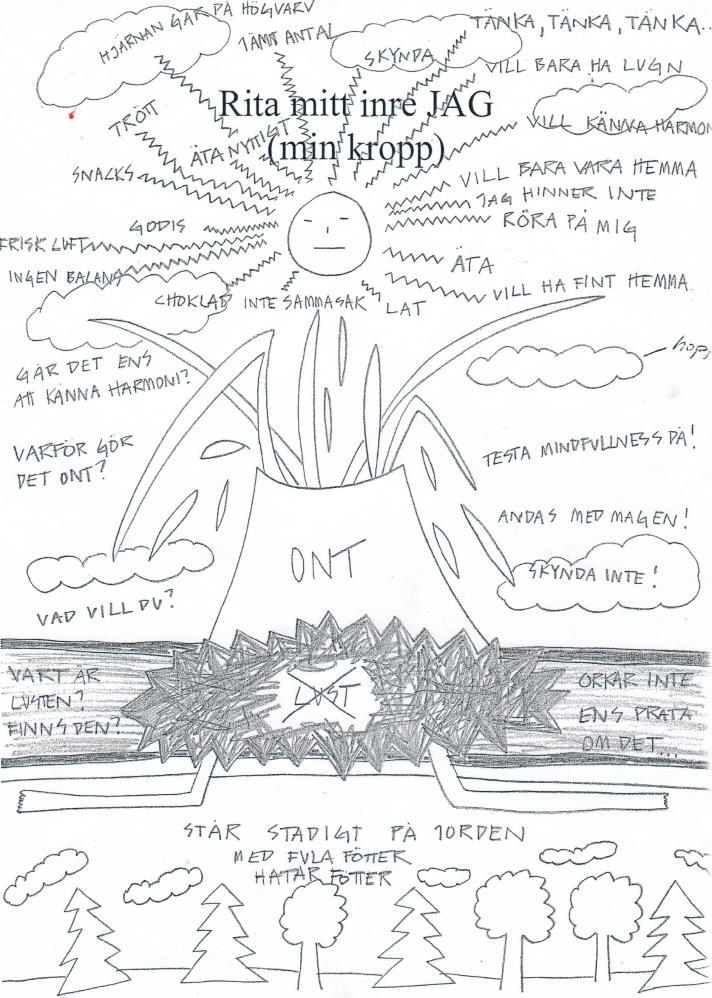 HJÄRNAN GÅR PÅ HÖGVARV
JÄMT ANTAL
SKYNDA
TÄNKA, TÄNKA, TÄNKA..
VILL BARA HA LUGN
Rita mitt inre JAG
(min kropp)
TRÖTT
ÄTA NYTTIGT
VILL KÄNNA HARMONI
SNACKS
VILL BARA VARA HEMMA
JAG HINNER INTE
RÖRA PÅ MIG
GODIS
FRISK LUFT
ÄTA
INGEN BALANS
CHOKLAD
INTE SAMMA SAK
LAT
VILL HA FINT HEMMA
GÅR DET ENS
ATT KÄNNA HARMONI?
VARFÖR GÖR
DET ONT?
TESTA MINDFULLNESS DÅ!
ANDAS MED MAGEN!
ONT
SKYNDA INTE!
VAD VILL DU?
VART ÄR
LUSTEN?
FINNS DEN?
LUST
ORKAR INTE
ENS PRATA
OM DET...
STÅR STADIGT PÅ JORDEN
MED FULA FÖTTER
HATAR FÖTTER